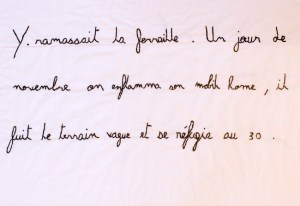 Y. ramassait la ferraille . Un jour de
novembre on enflamma son mobil home , il
fuit le terrain vague et se réfugia au 30 .